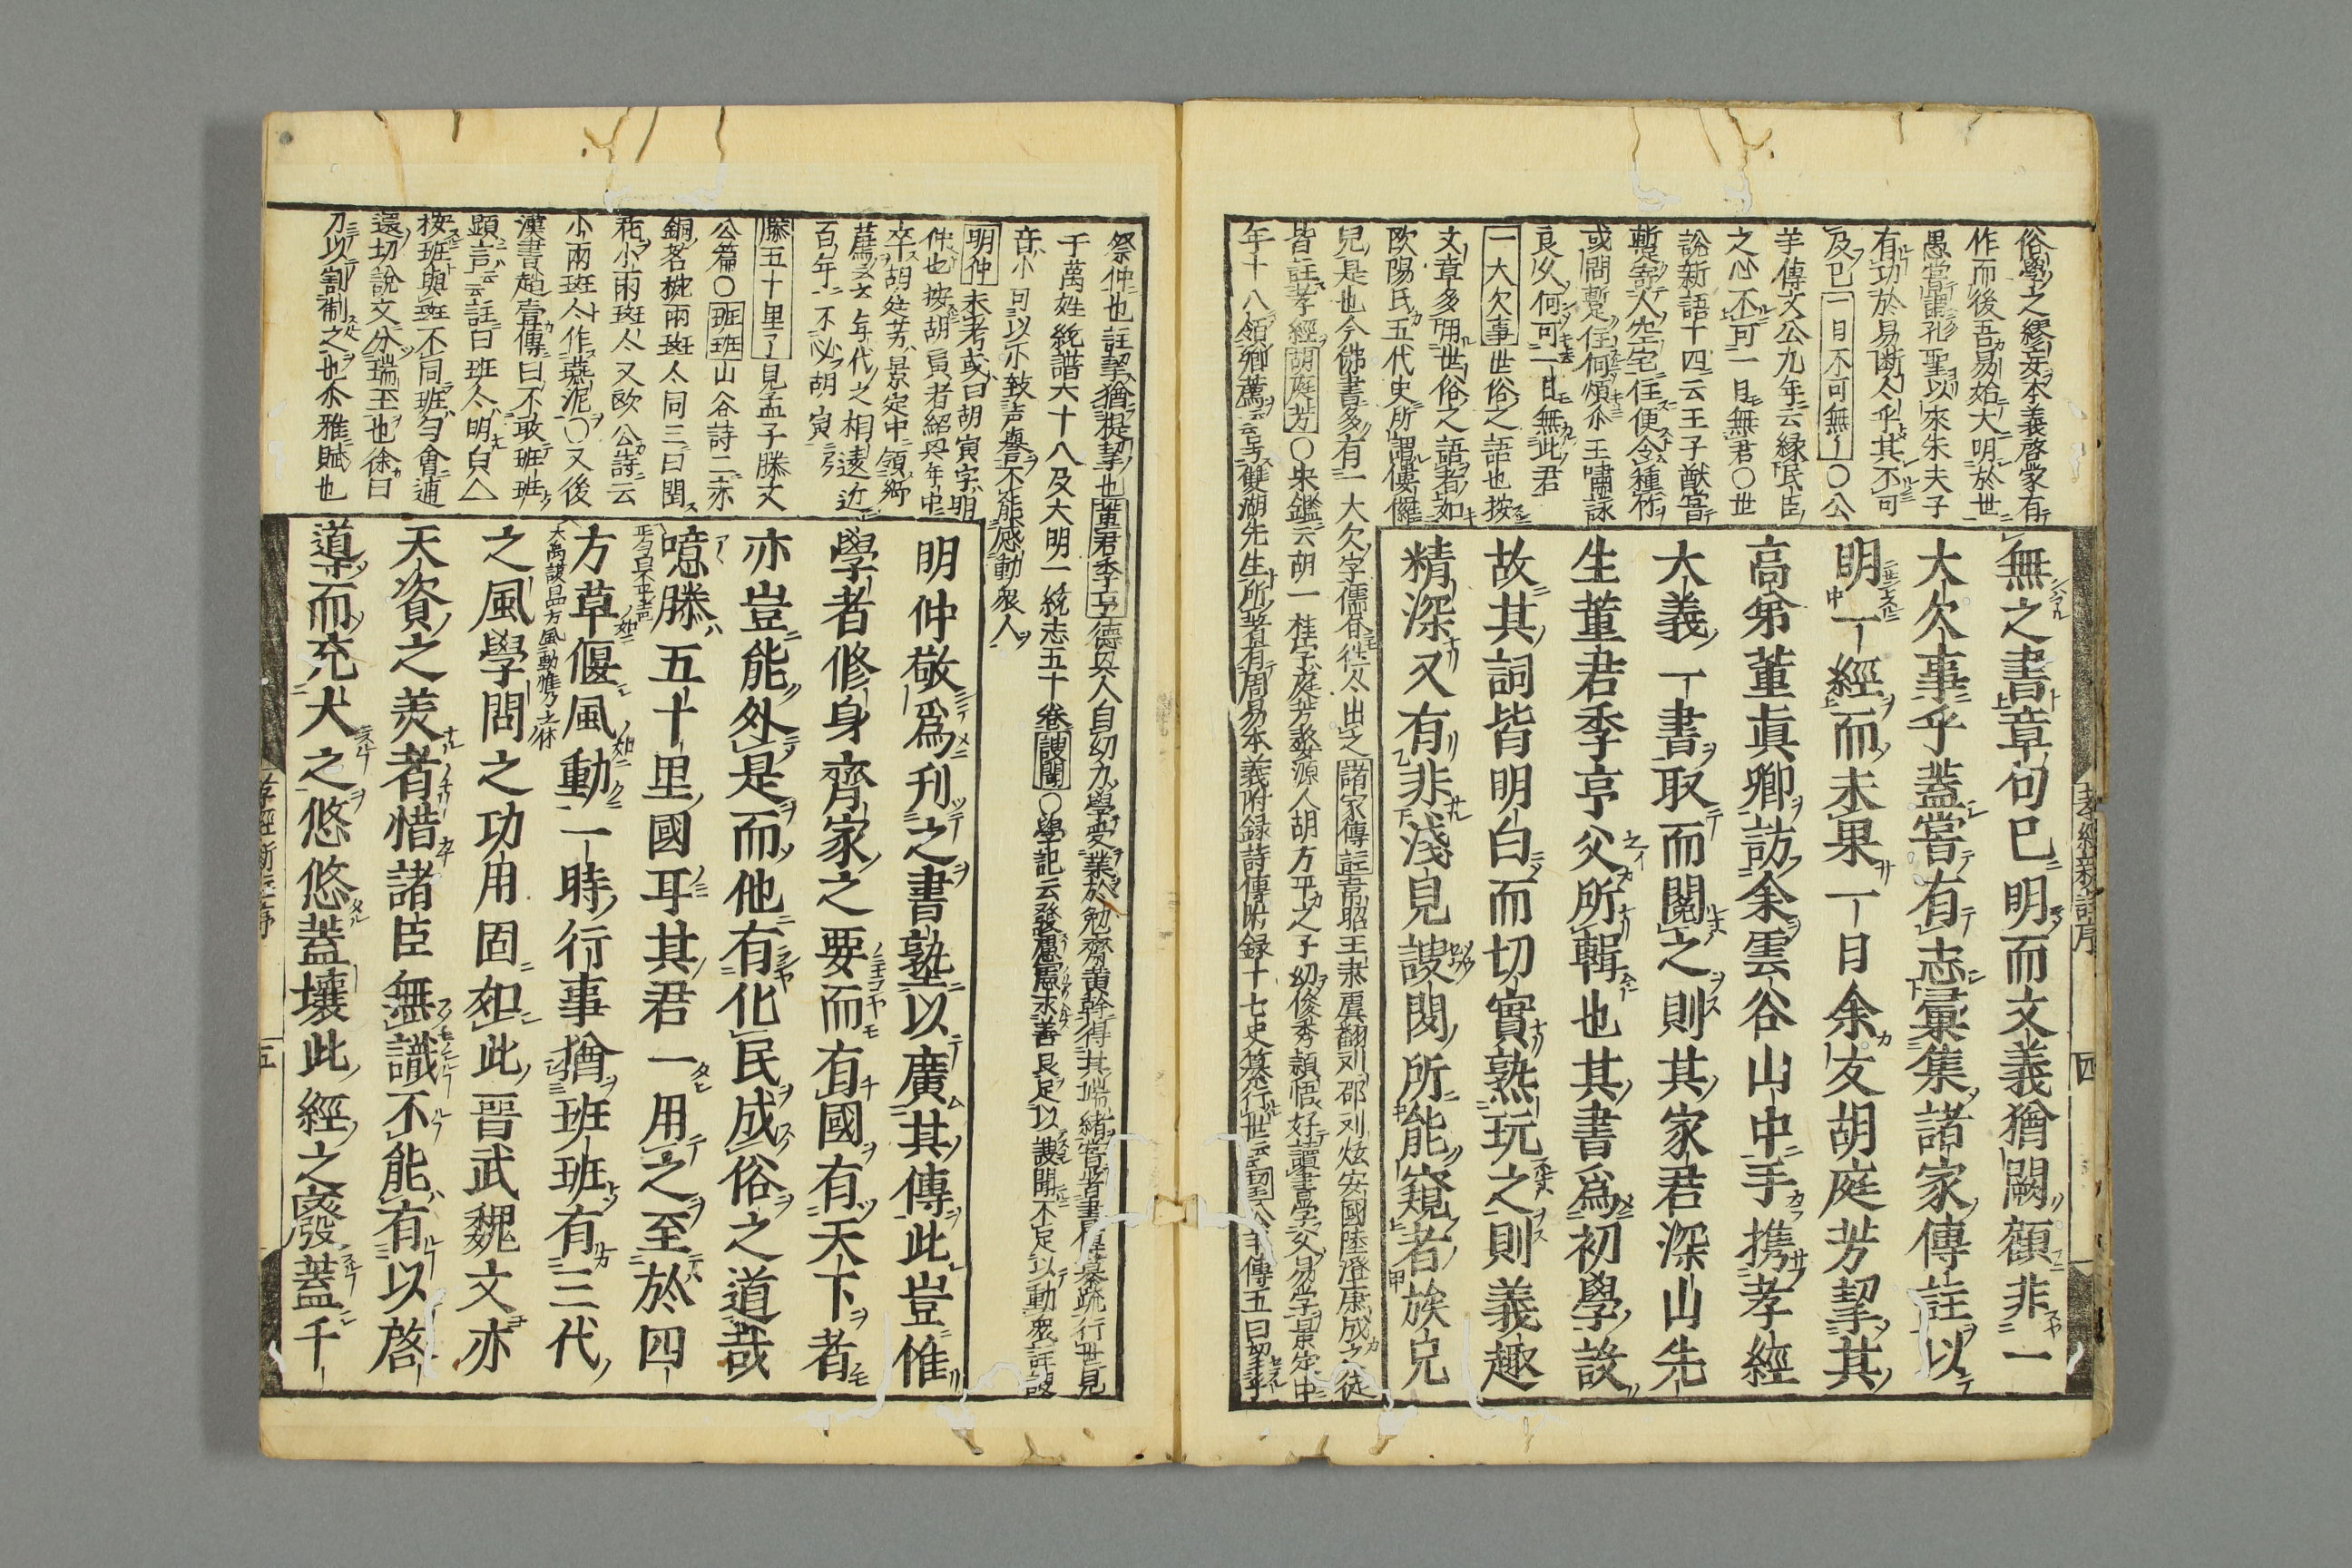 無之書章句已明而文義猶闕顧非一
大欠事乎蓋嘗有志彙集諸家傳註以
明一經而未果一日余友胡庭芳挈其
高弟董真卿訪余雲谷山中手携孝經
大義一書取而閲之則其家君深山先
生董君季亨父所輯也其書爲初學設
故其詞皆明白而切實熟玩之則義趣
精深又有非淺見謏聞所能窺者族兄
俗學之繆妄本義啓蒙有
作而後吾易始大明於世
愚嘗謂孔聖以來朱夫子
有功於易斷人乎其不可
及已一日不可無一〇公
羊傳文公九年云縁民臣
之心不可一日無君〇世
說新語十四云王子猷嘗
暫寄人空宅住便令種竹
或問暫住何煩尒王嘯詠
良久何可一日無此君
一大欠事世俗之語也按
文章多用世俗之語者如
欧陽氏五代史所謂僂儸
兒是也今佛書多有一大欠字儒昏徃〻出之諸家傳註韋昭王肅虞翻刘邵刘炫安國陸澄康成之徒
皆註孝經胡庭芳〇朱鑑云胡一桂字庭芳婺源人胡方平之子幼俊秀穎悟好讀書學父易学景定中
年十八領鄉薦云云号雙湖先生所著有周易本義附録詩傳附録十七史纂行世云云
孝經新註序
四
祭仲也註挈猶提挈也董君季亨德兴人自幼力學受業於勉齋黄幹得其端緒嘗著書傳纂疏行世見
千萬姓統譜六十八及大明一統志五十巻謏聞〇學記云發慮憲求善良足以謏聞不足以動衆註謏
音小可以小致声譽不能感動衆人
明仲未考或曰胡寅字明
仲也按胡寅者紹兴年中
卒胡庭芳景定中領鄉
薦云云年代之相遠近
百年不必胡寅
滕五十里一見孟子滕文
公篇〇班班山谷詩二亦
銅茗椀雨斑〻同三曰閏
秅小雨斑〻又欧公詩云
小雨斑〻作燕泥〇又後
漢書趙壹傳曰不敢班班
顕言云云註曰班〻明白△
按班與斑不同班勻會逋
還切說文分瑞玉也徐曰
刀以割制之也尒雅賦也
明仲敬爲刊之書塾以廣其傳此豈惟
學者修身齊家之要而有國有天下者
亦豈能外是而他有化民成俗之道哉
噫滕五十里國耳其君一用之至於四
方草偃風動一時行事猶班班有三代
之風學問之功用固如此晋武魏文亦
天資之美者惜諸臣無識不能有以啓
導而充大之悠悠蓋壤此經之廢蓋千
孝經新註序
五